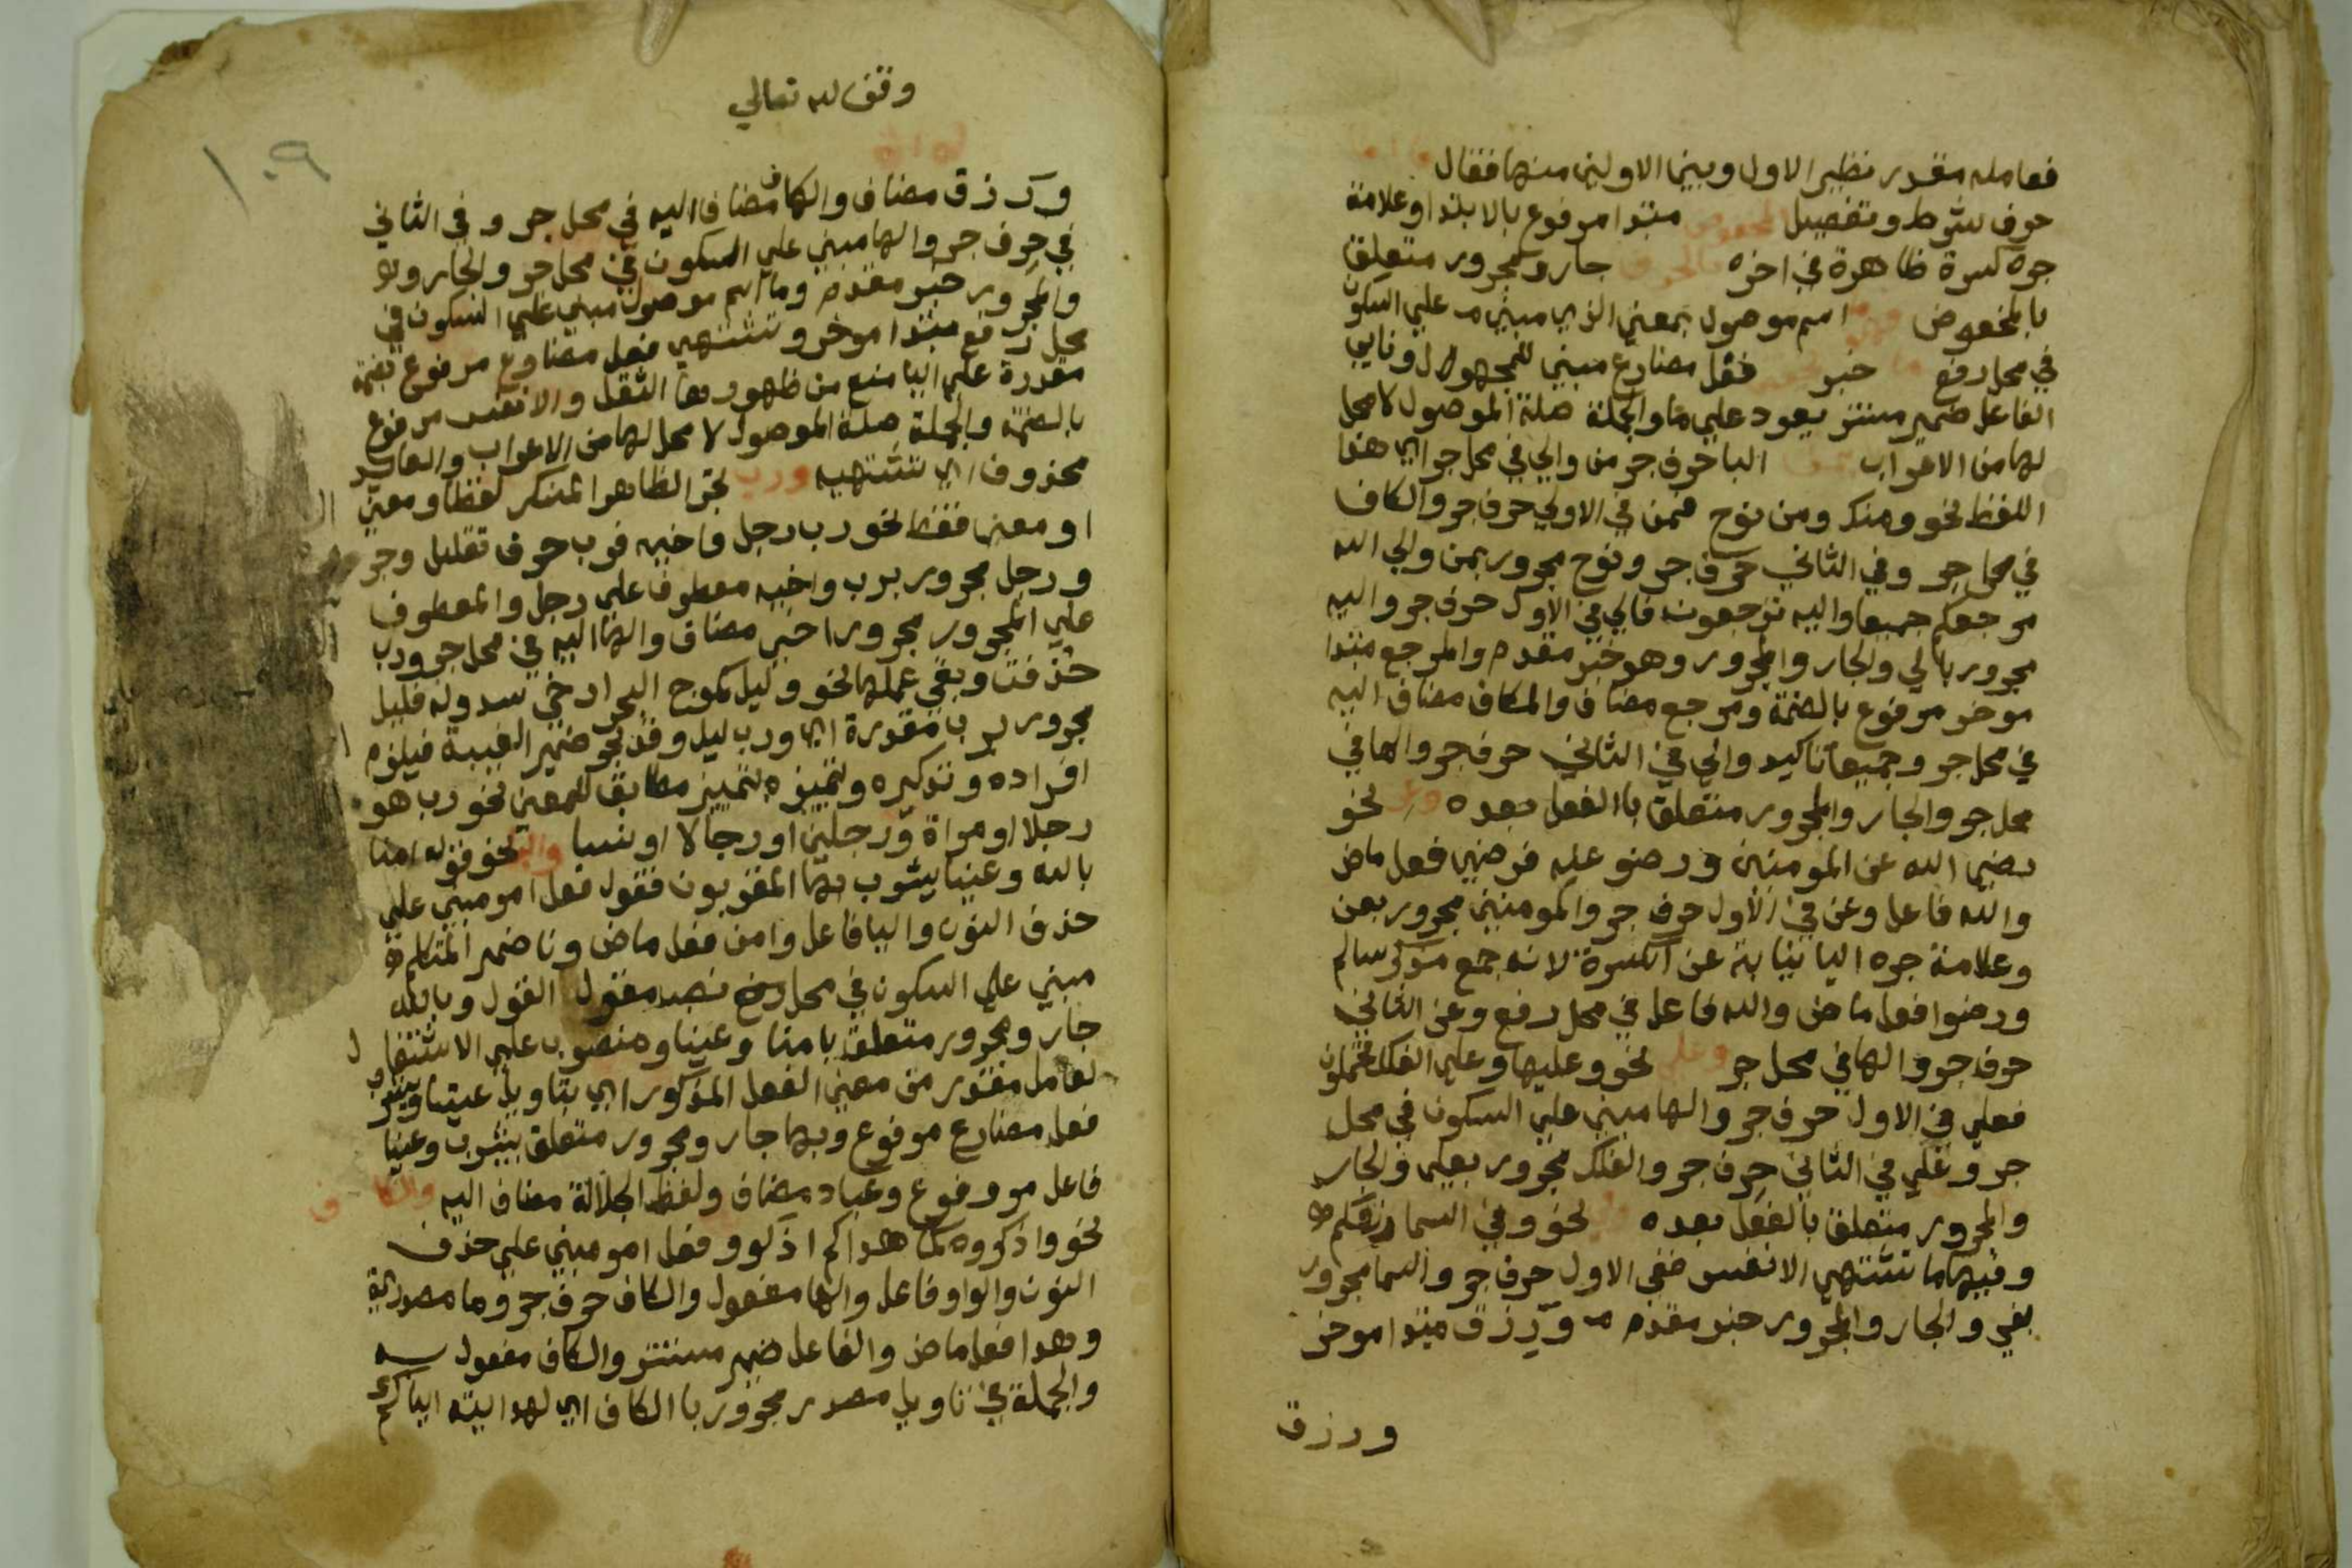 فعامله مقدر نظير الاول وبين الاولين منهما فقال
حرف شرط وتفصيل المخفوض مبتدا مرفوع بالابتدا وعلامة
جره كسرة ظاهرة في اخره بالحرف جار ومجرور متعلق
بالمخفوض اسم موصول بمعني الذي مبني علي السكون
في محل رفع خبر فعل مضارع مبني للمجهول ونايب
الفاعل ضمير مستتر يعود علي ما والجملة صلة الموصول لا محل
لها من الاعراب البا حرف جر من والي في محل جر اي هذا
اللفظ نحو ومنك ومن نوح فمن في الاولي حرف جر والكاف
في محل جر وفي الثاني حرف جر ونوح مجرور بمن والي الله
مرجعكم جميعا واليه ترجعون فالي في الاول حرف جر واليه
مجرور بالي والجار والمجرور وهو خبر مقدم والمرجع مبتدا
موخر مرفوع بالضمة ومرجع مضاف والكاف مضاف اليه
في محل جر وجميعا تاكيد والي في الثاني حرف جر والها في
محل جر والجار والمجرور متعلق باالفعل بعده وعن نحو
رضي الله عن المومنين ورضو عنه فرضي فعل ماض
والله فاعل وعن في الاول حرف جر والمومنين مجرور بعن
وعلامة جره اليا نيابة عن الكسرة لانه جمع مذكر سالم
ورضوا فعل ماض والله فاعل في محل رفع وعن الثاني
حرف جر والها في محل جر وعلي نحو وعليها وعلي الفلك تحملون
فعلي في الاول حرف جر والها مبني علي السكون في محل
جر وعلي في الثاني حرف جر والفلك مجرور بعلي والجار
والمجرور متعلق بالفعل بعده نحو وفي السما رزقكم
وفيها ما تشتهي الانفس ففي الاول حرف جر والسما مجرور
بفي والجار والمجرور خبر مقدم ورزق مبتدا موخر
ورزق
وقف لله تعالي
١٠٩
ورزق مضاف والكاف مضاف اليه في محل جر وفي الثاني
في حرف جر والها مبني علي السكون في محل جر والجار
والمجرور خبر مقدم وما اسم موصول مبني علي السكون في
محل رفع مبتدا موخر وتشتهي فعل مضارع مرفوع بضمة
مقدرة علي اليا منع من ظهورها الثقل والانفس مرفوع
بالضمة والجملة صلة الموصول لا محل لها من الاعراب والعايد
محذوف اي تشتهيه ورب تجر الظاهر المنكر لفظا ومعني
او معني فقط نحو رب رجل واخيه فرب حرف تقليل وجر
ورجل مجرور برب واخيه معطوف علي رجل والمعطوف
علي المجرور مجرور اخي مضاف والها اليه في محل جر ورب
حذفت وبقي عملها نحو وليل كموج البحر ارخي سدوله فليل
مجرور برب مقدرة اي ورب ليل وقد تجر ضمير الغيبة فيلزم
افراده وتذكيره وتمييزه بتمييز مطابق للمعني نحو رب هو
رجلا او مراة ورجلين او رجالا او نسا والبا نحو قوله امنا
بالله وعينا يشرب بها المقربون فقول فعل امر مبني علي
حذف النون واليا فاعل وامن فعل ماض ونا ضمير المتكلم
مبني علي السكون في محل رفع نصب مقول القول وبالله
جار ومجرور متعلق بامنا وعينا منصوب علي الاشتغال
لعامل مقدر من معني الفعل المذكور اي بتاويل عينا ويشرب
فعل مضارع مرفوع وبها جار ومجرور متعلق بيشرب وعينا
فاعل مرفوع وعباد مضاف ولفظ الجلالة مضاف اليه والكاف
نحو واذكروه كما هداكم اذكرو فعل امر مبني علي حذف
النون والواو فاعل والها مفعول والكاف حرف جر وما مصدرية
وهدا فعل ماض والفاعل ضمير مستتر والكاف مفعول به
والجملة في تاويل مصدر مجرور باالكاف اي لهدايته اياكم